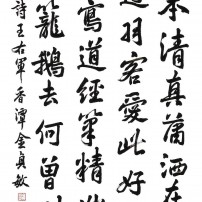 本清真瀟洒在
羽客愛此好
寫道經筆精妙
籠鵝去何曾
詩王右軍香潭金貞敏